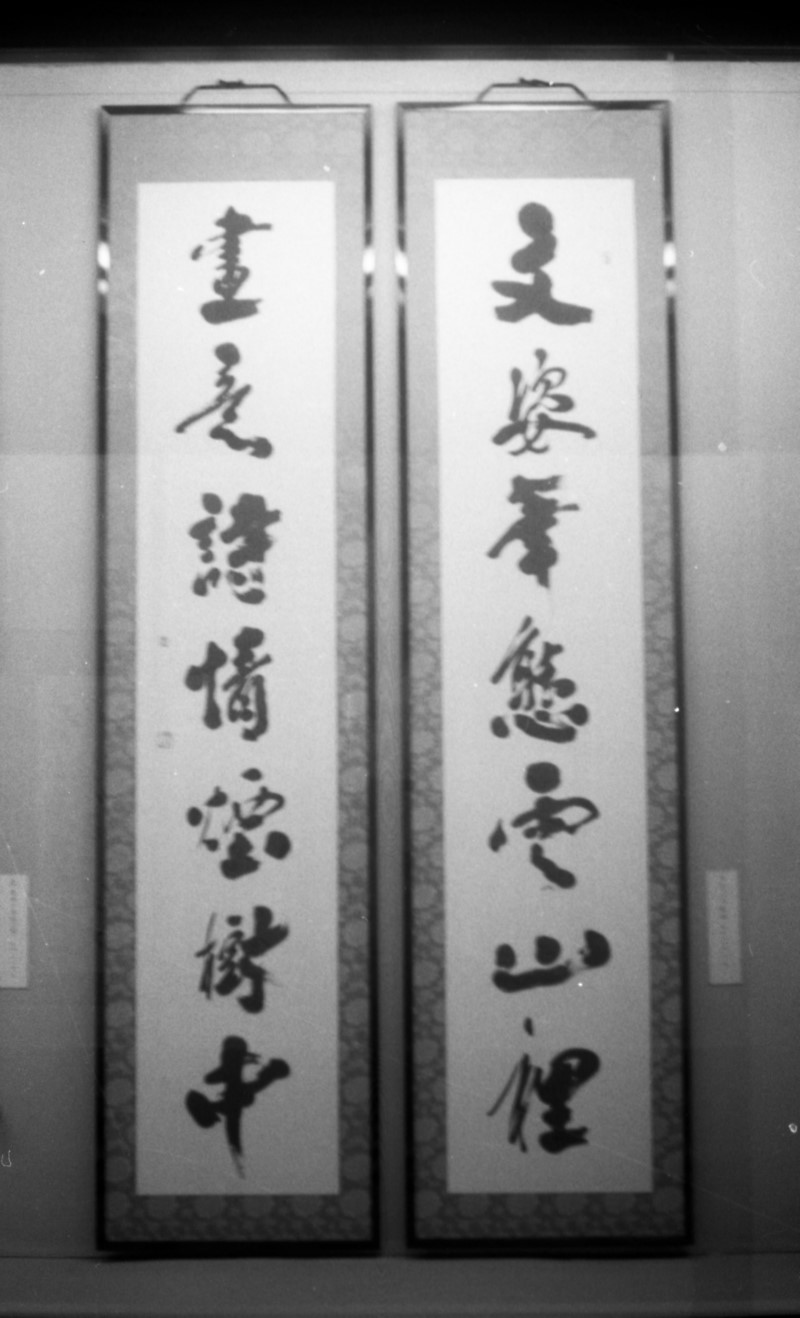 文姿筆態雲山裡
畫意詩情煙樹中